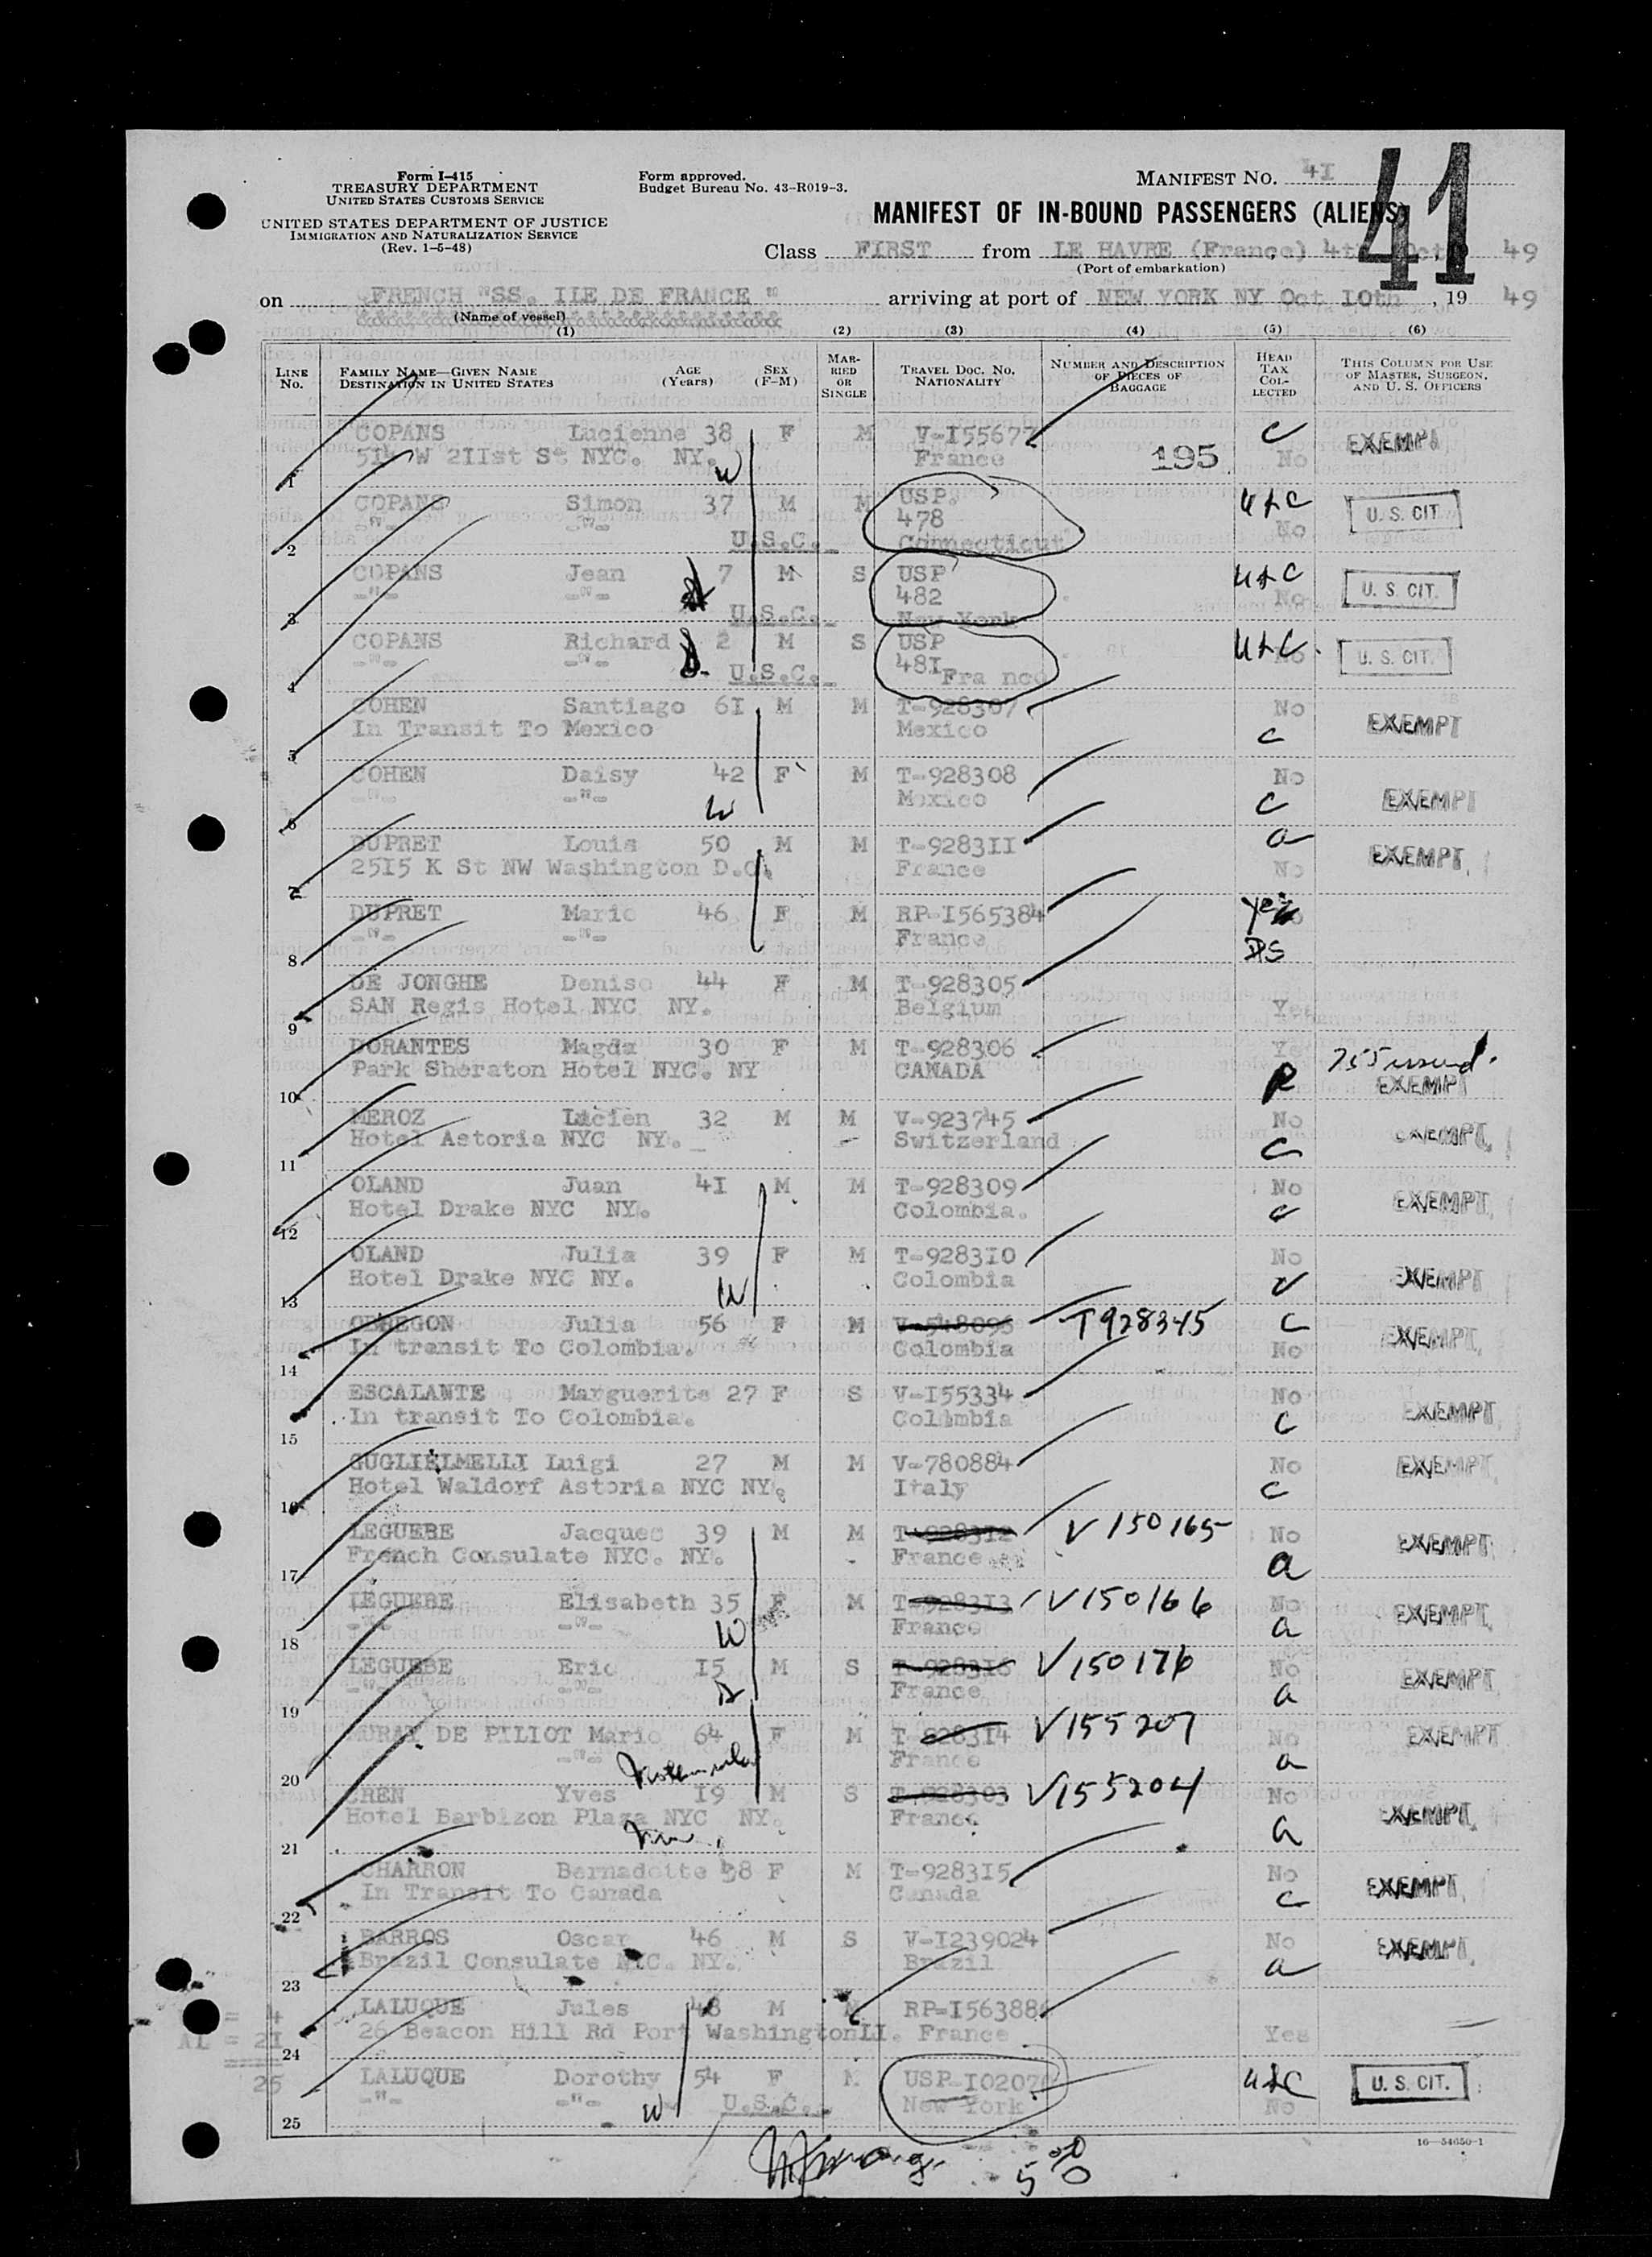 Form I-415
TREASURY DEPARTMENT
UNITED STATES CUSTOMS SERVICE
UNITED STATES DEPARTMENT OF JUSTICE
IMMIGRATION AND NATURALIZATION SERVICE
(Rev. 1-5-48)
Form approved.
Budget Bureau No. 43-R019-3.
MANIFEST NO. 4I
41
MANIFEST OF IN-BOUND PASSENGERS (ALIENS)
Class FIRST from LE HAVRE (France) 4th Oct 49
(Port of embarkation)
on FRENCH "SS. ILE DE FRANCE " arriving at port of NEW YORK NY Oct I0th, 19 49
(Name of vessel)
(1) (2) (3) (4) (5) (6)
LINE No. FAMILY NAME—GIVEN NAME DESTINATION IN UNITED STATES AGE (Years) SEX (F-M) MARRIED OR SINGLE TRAVEL DOC. NO. NATIONALITY NUMBER AND DESCRIPTION OF PIECES OF BAGGAGE HEAD TAX COLLECTED THIS COLUMN FOR USE OF MASTER, SURGEON, AND U. S. OFFICERS
COPANS Lucienne 38 F M V-I55677 C EXEMPT
5I4 W 2IIst St NYC. NY. W France 195 No
1
COPANS Simon 37 M M USP. USC U. S. CIT.
-"- -"- 478 No
2 U.S.C. Connecticut
COPANS Jean 7 M S USP USC U. S. CIT.
-"- -"- 482 No
3 U.S.C. New York
COPANS Richard 2 M S USP USC. No U. S. CIT.
-"- -"- 48I
4 U.S.C. France
COHEN Santiago 6I M M T-928307 No EXEMPT
In Transit To Mexico Mexico C
5
COHEN Daisy 42 F M T-928308 No EXEMPT
-"- -"- W Mexico C
6
DUPRET Louis 50 M M T-9283II a EXEMPT.
25I5 K St NW Washington D.C. France No
7
DUPRET Marie 46 F M RP-I565384 Yes
-"- -"- France DS
8
DE JONGHE Denise 44 F M T-928305
SAN Regis Hotel NYC NY. Belgium Yes
9
DORANTES Magda 30 F M T-928306 Yes
Park Sheraton Hotel NYC. NY CANADA EXEMPT
10
MEROZ Lucien 32 M M V-923745 No EXEMPT.
Hotel Astoria NYC NY. Switzerland C
11
OLAND Juan 4I M M T-928309 No EXEMPT.
Hotel Drake NYC NY. Colombia. C
12
OLAND Julia 39 F M T-9283I0 No EXEMPT
Hotel Drake NYC NY. W Colombia C
13
OBREGON Julia 56 F M V-548096 T928345 C EXEMPT.
In transit To Colombia. Colombia No
14
ESCALANTE Marguerite 27 F S V-I55334 No EXEMPT.
In transit To Colombia. Colimbia C
15
GUGLIELMELLI Luigi 27 M M V-780884 No EXEMPT.
Hotel Waldorf Astoria NYC NY. Italy C
16
LEGUEBE Jacques 39 M M T-9283I2 V150165 No EXEMPT.
French Consulate NYC. NY. France a
17
LEGUEBE Elisabeth 35 F M T-9283I3 V150166 No EXEMPT.
-"- -"- W France a
18
LEGUEBE Eric I5 M S T-9283I6 V150176 No EXEMPT.
-"- -"- France a
19
DE PILIOT Marie 64 F M T-9283I4 V155207 No EXEMPT.
-"- France a
20
Yves I9 M S T-928303 V155204 No EXEMPT.
Hotel Barbizon Plaza NYC NY. France a
21
CHARRON Bernadette 38 F M T-9283I5 No EXEMPT.
In Transit To Canada Canada C
22
BARROS Oscar 46 M S V-I239024 No EXEMPT.
Brazil Consulate NYC. NY. Brazil a
23
= 4 LALUQUE Jules 48 M M RP-I563886
AL = 2I 26 Beacon Hill Rd Port Washington LI. France Yes
24
25 LALUQUE Dorothy 54 F M USP-I02070 USC U. S. CIT.
-"- -"- W U.S.C. New York No
25
16—54650-1